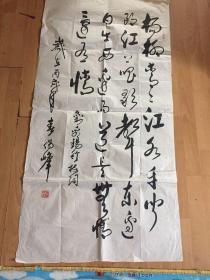 杨柳青青江水平闻
郎江上唱歌声东边
日出西边雨道是无情
还有情
刘禹锡竹枝词